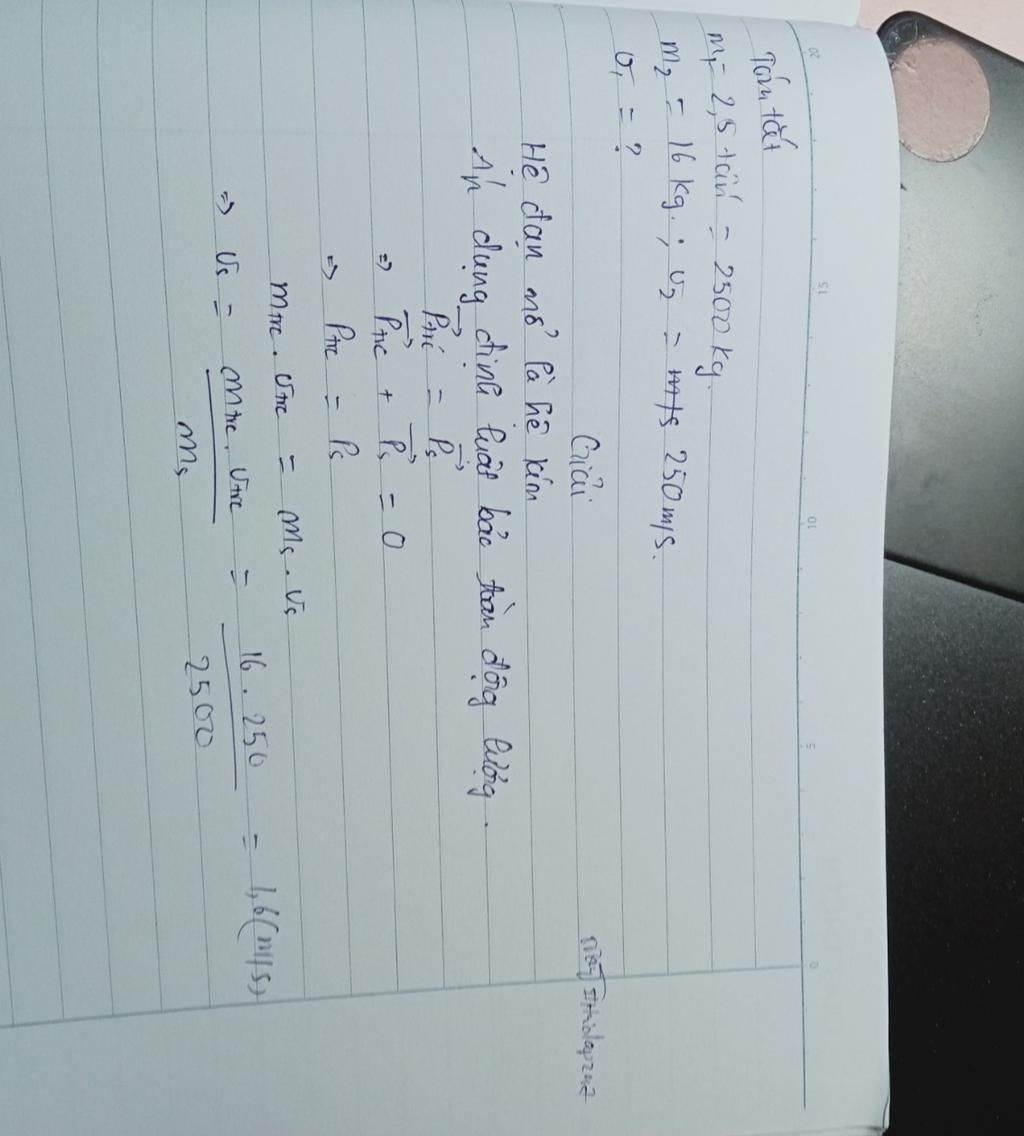 Tóm tắt
m₁ = 2,5 tấn = 2500 kg.
m₂ = 16 kg ; v₂ = m/s 250 m/s.
v₁ = ?
Giải
Hệ đạn nổ là hệ kín
Áp dụng định luật bảo toàn động lượng.
Ptrc = Ps
=> Ptrc + Ps = 0
=> Ptrc = Ps
mtrc . vtrc = ms . vs
=> vs = mtrc . vtrc / ms = 16 . 250 / 2500 = 1,6 (m/s)
20 15 10 5 0